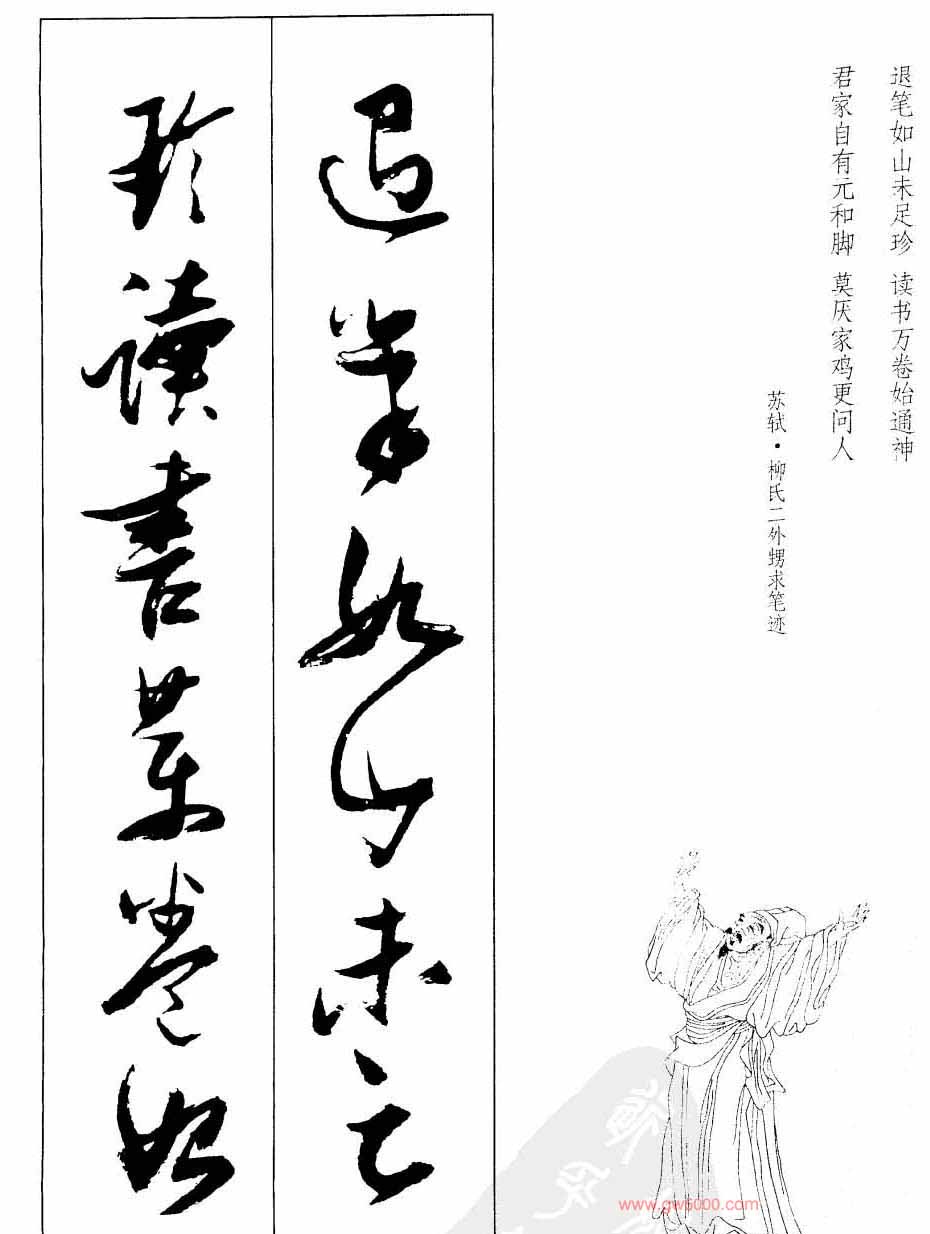 退笔如山未足珍 读书万卷始通神
君家自有元和脚 莫厌家鸡更问人
苏轼·柳氏二外甥求笔迹
退筆如山未足
珍讀書萬卷始
www.gw5000.com